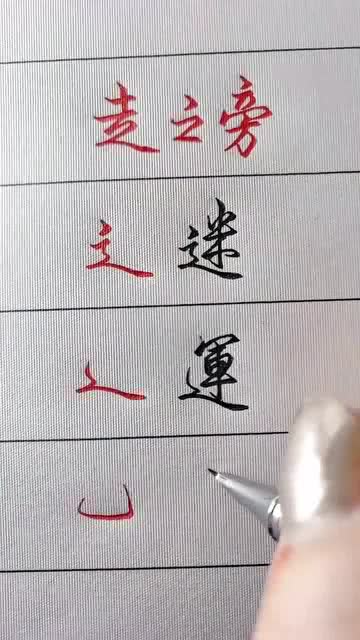 走之旁
辶 迷
辶 運